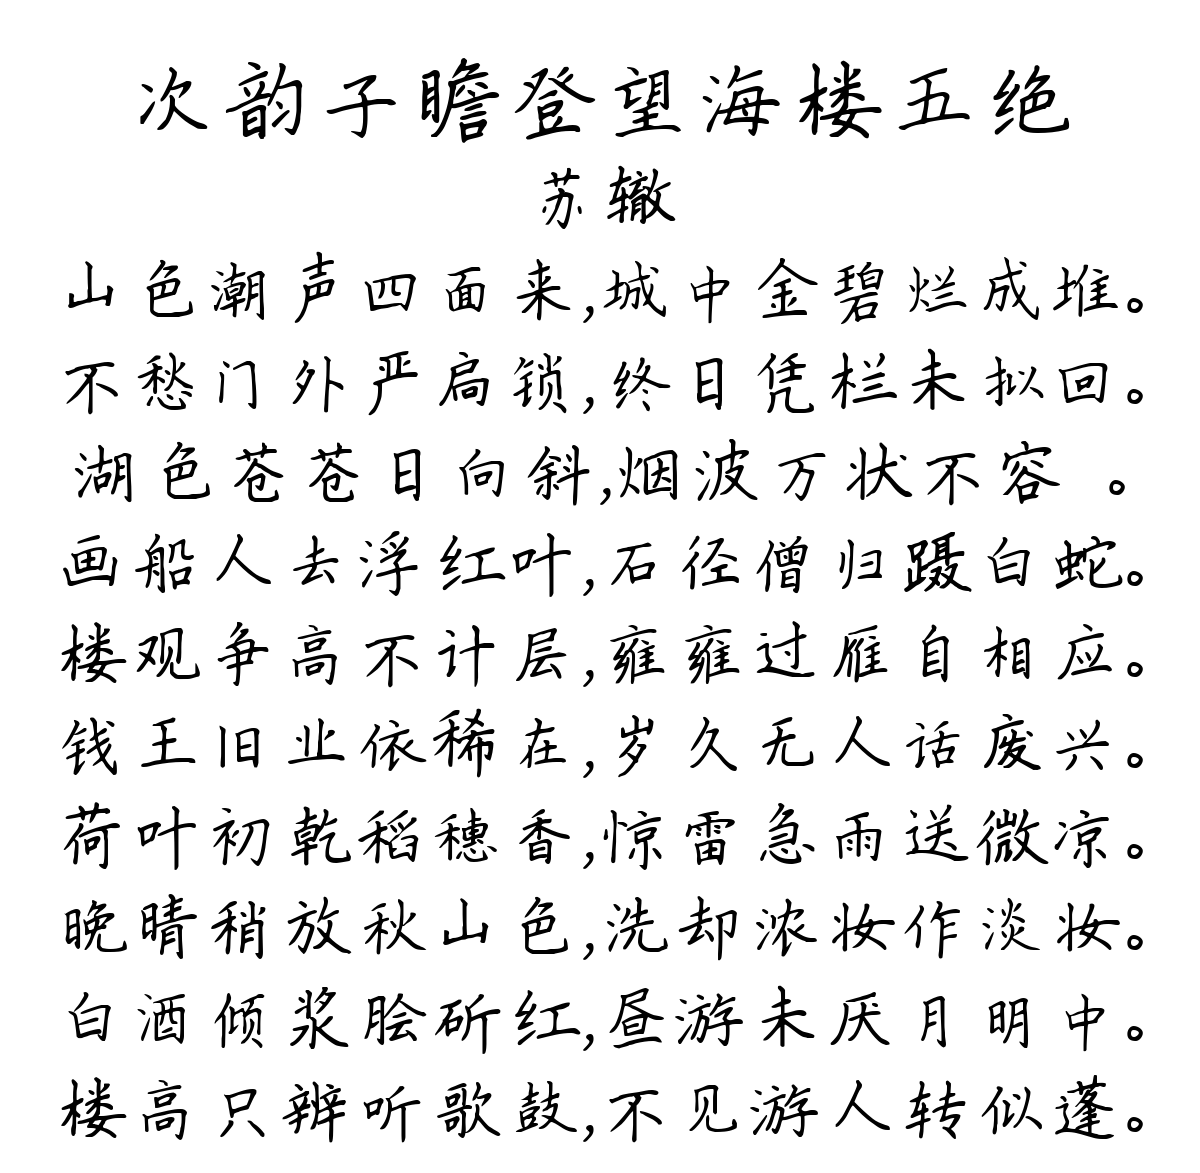 次韵子瞻登望海楼五绝
苏辙
山色潮声四面来,城中金碧烂成堆。
不愁门外严扃锁,终日凭栏未拟回。
湖色苍苍日向斜,烟波万状不容 。
画船人去浮红叶,石径僧归蹑白蛇。
楼观争高不计层,雍雍过雁自相应。
钱王旧业依稀在,岁久无人话废兴。
荷叶初乾稻穗香,惊雷急雨送微凉。
晚晴稍放秋山色,洗却浓妆作淡妆。
白酒倾浆脍斫红,昼游未厌月明中。
楼高只辨听歌鼓,不见游人转似蓬。